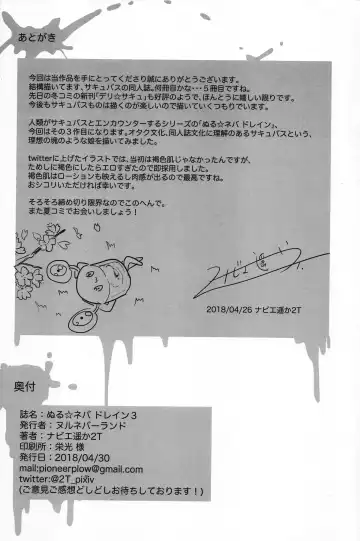 あとがき
今回は当作品を手にとってくださり誠にありがとうございます。
結構描いてます、サキュバスの同人誌。何冊目かな…５冊目ですね。
先日の冬コミの新刊「デリ☆サキュ」も好評のようで、ほんとうに嬉しい限りです。
今後もサキュバスものは描くのが楽しいので描いていくつもりでいます。
人類がサキュバスとエンカウンターするシリーズの「ぬる☆ネバ ドレイン」、
今回はその３作目になります。オタク文化、同人誌文化に理解のあるサキュバスという、
理想の塊のような娘を描いてみました。
twitterに上げたイラストでは、当初は褐色肌じゃなかったんですが、
ためしに褐色にしたらエロすぎたので即採用しました。
褐色肌はローションも映えるし肉感が出るので最高ですね。
おシコリいただければ幸いです。
そろそろ締め切り限界なのでこのへんで。
また夏コミでお会いしましょう！
ナビエ遥か
2018/04/26 ナビエ遥か2T
奥付
誌名：ぬる☆ネバ ドレイン３
発行者：ヌルネバーランド
著者：ナビエ遥か2T
印刷所：栄光 様
発行日：2018/04/30
mail:pioneerplow@gmail.com
twitter:@2T_pixiv
(ご意見ご感想どしどしお待ちしております！)